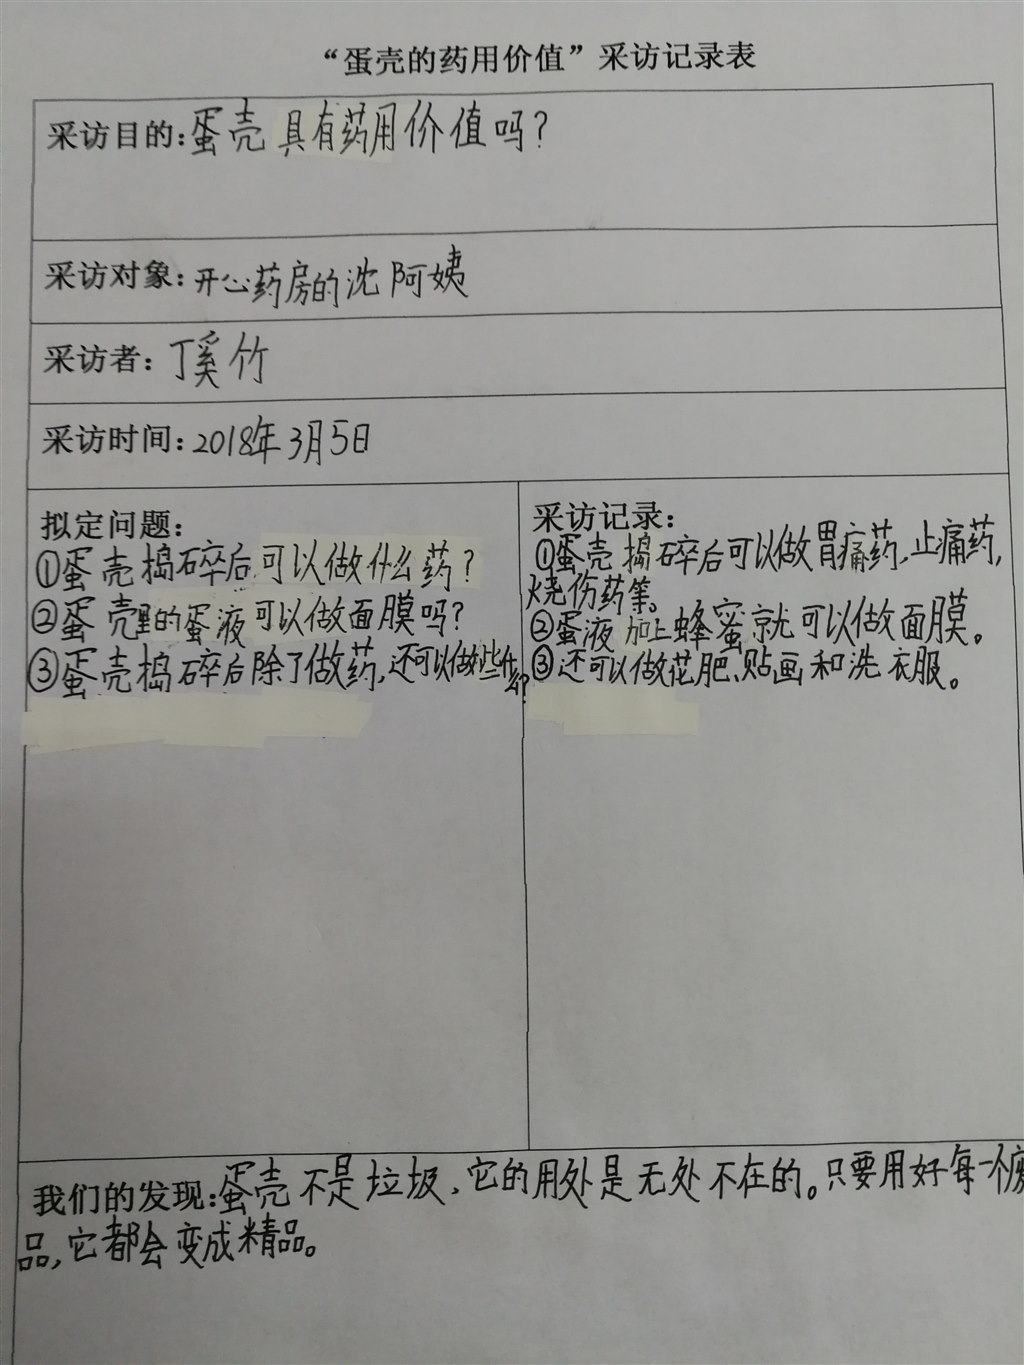 “蛋壳的药用价值”采访记录表
采访目的:蛋壳具有药用价值吗?
采访对象:开心药房的沈阿姨
采访者:丁奚竹
采访时间:2018年3月5日
拟定问题:
①蛋壳捣碎后可以做什么药?
②蛋壳里的蛋液可以做面膜吗?
③蛋壳捣碎后除了做药,还可以做些什么?
采访记录:
①蛋壳捣碎后可以做胃痛药,止痛药,
烧伤药等。
②蛋液加上蜂蜜就可以做面膜。
③还可以做花肥、贴画和洗衣服。
我们的发现:蛋壳不是垃圾,它的用处是无处不在的。只要用好每一个废
品,它都会变成精品。